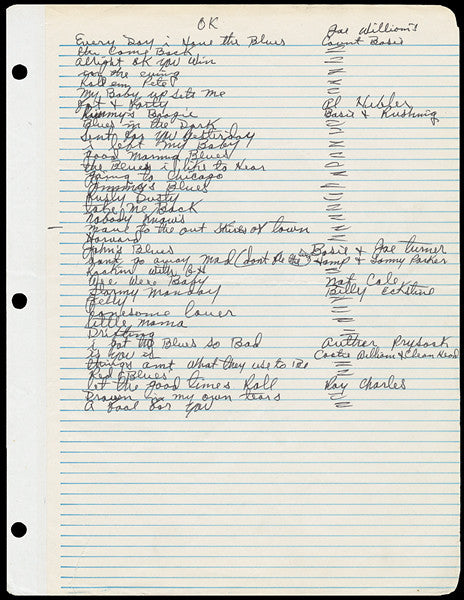 OK
Joe William's
Every Day i Have the Blues Count Basie
Come Back
alright OK you Win
Roll em Pete
My Baby up Sets Me
Fat & Forty Al Hibler
Jimmy's Boogie Basie & Rushing
Blues in the Dark
Sent for You Yesterday
i left my Baby
Good Morning Blues
the Blues i like to Hear
Going to Chicago
Jimmy's Blues
Rusty Dusty
Take Me Back
Nobody Knows
Mand to the out Skirts of town
Harvard
John's Blues Basie & Joe Turner
dont go away Mad Hamp & Sonny Parker
Rockin With
Wee Wee Baby Nat Cole
Stormy Monday Billy Eckstine
Jelly
Lonesome lover
little mama
Drifting
i got the Blues so Bad Auther Prysock
is you is & Clean Head
things aint What they use to Be
Red & Blues
let the good times Roll Ray Charles
Drown in my own tears
a fool for you